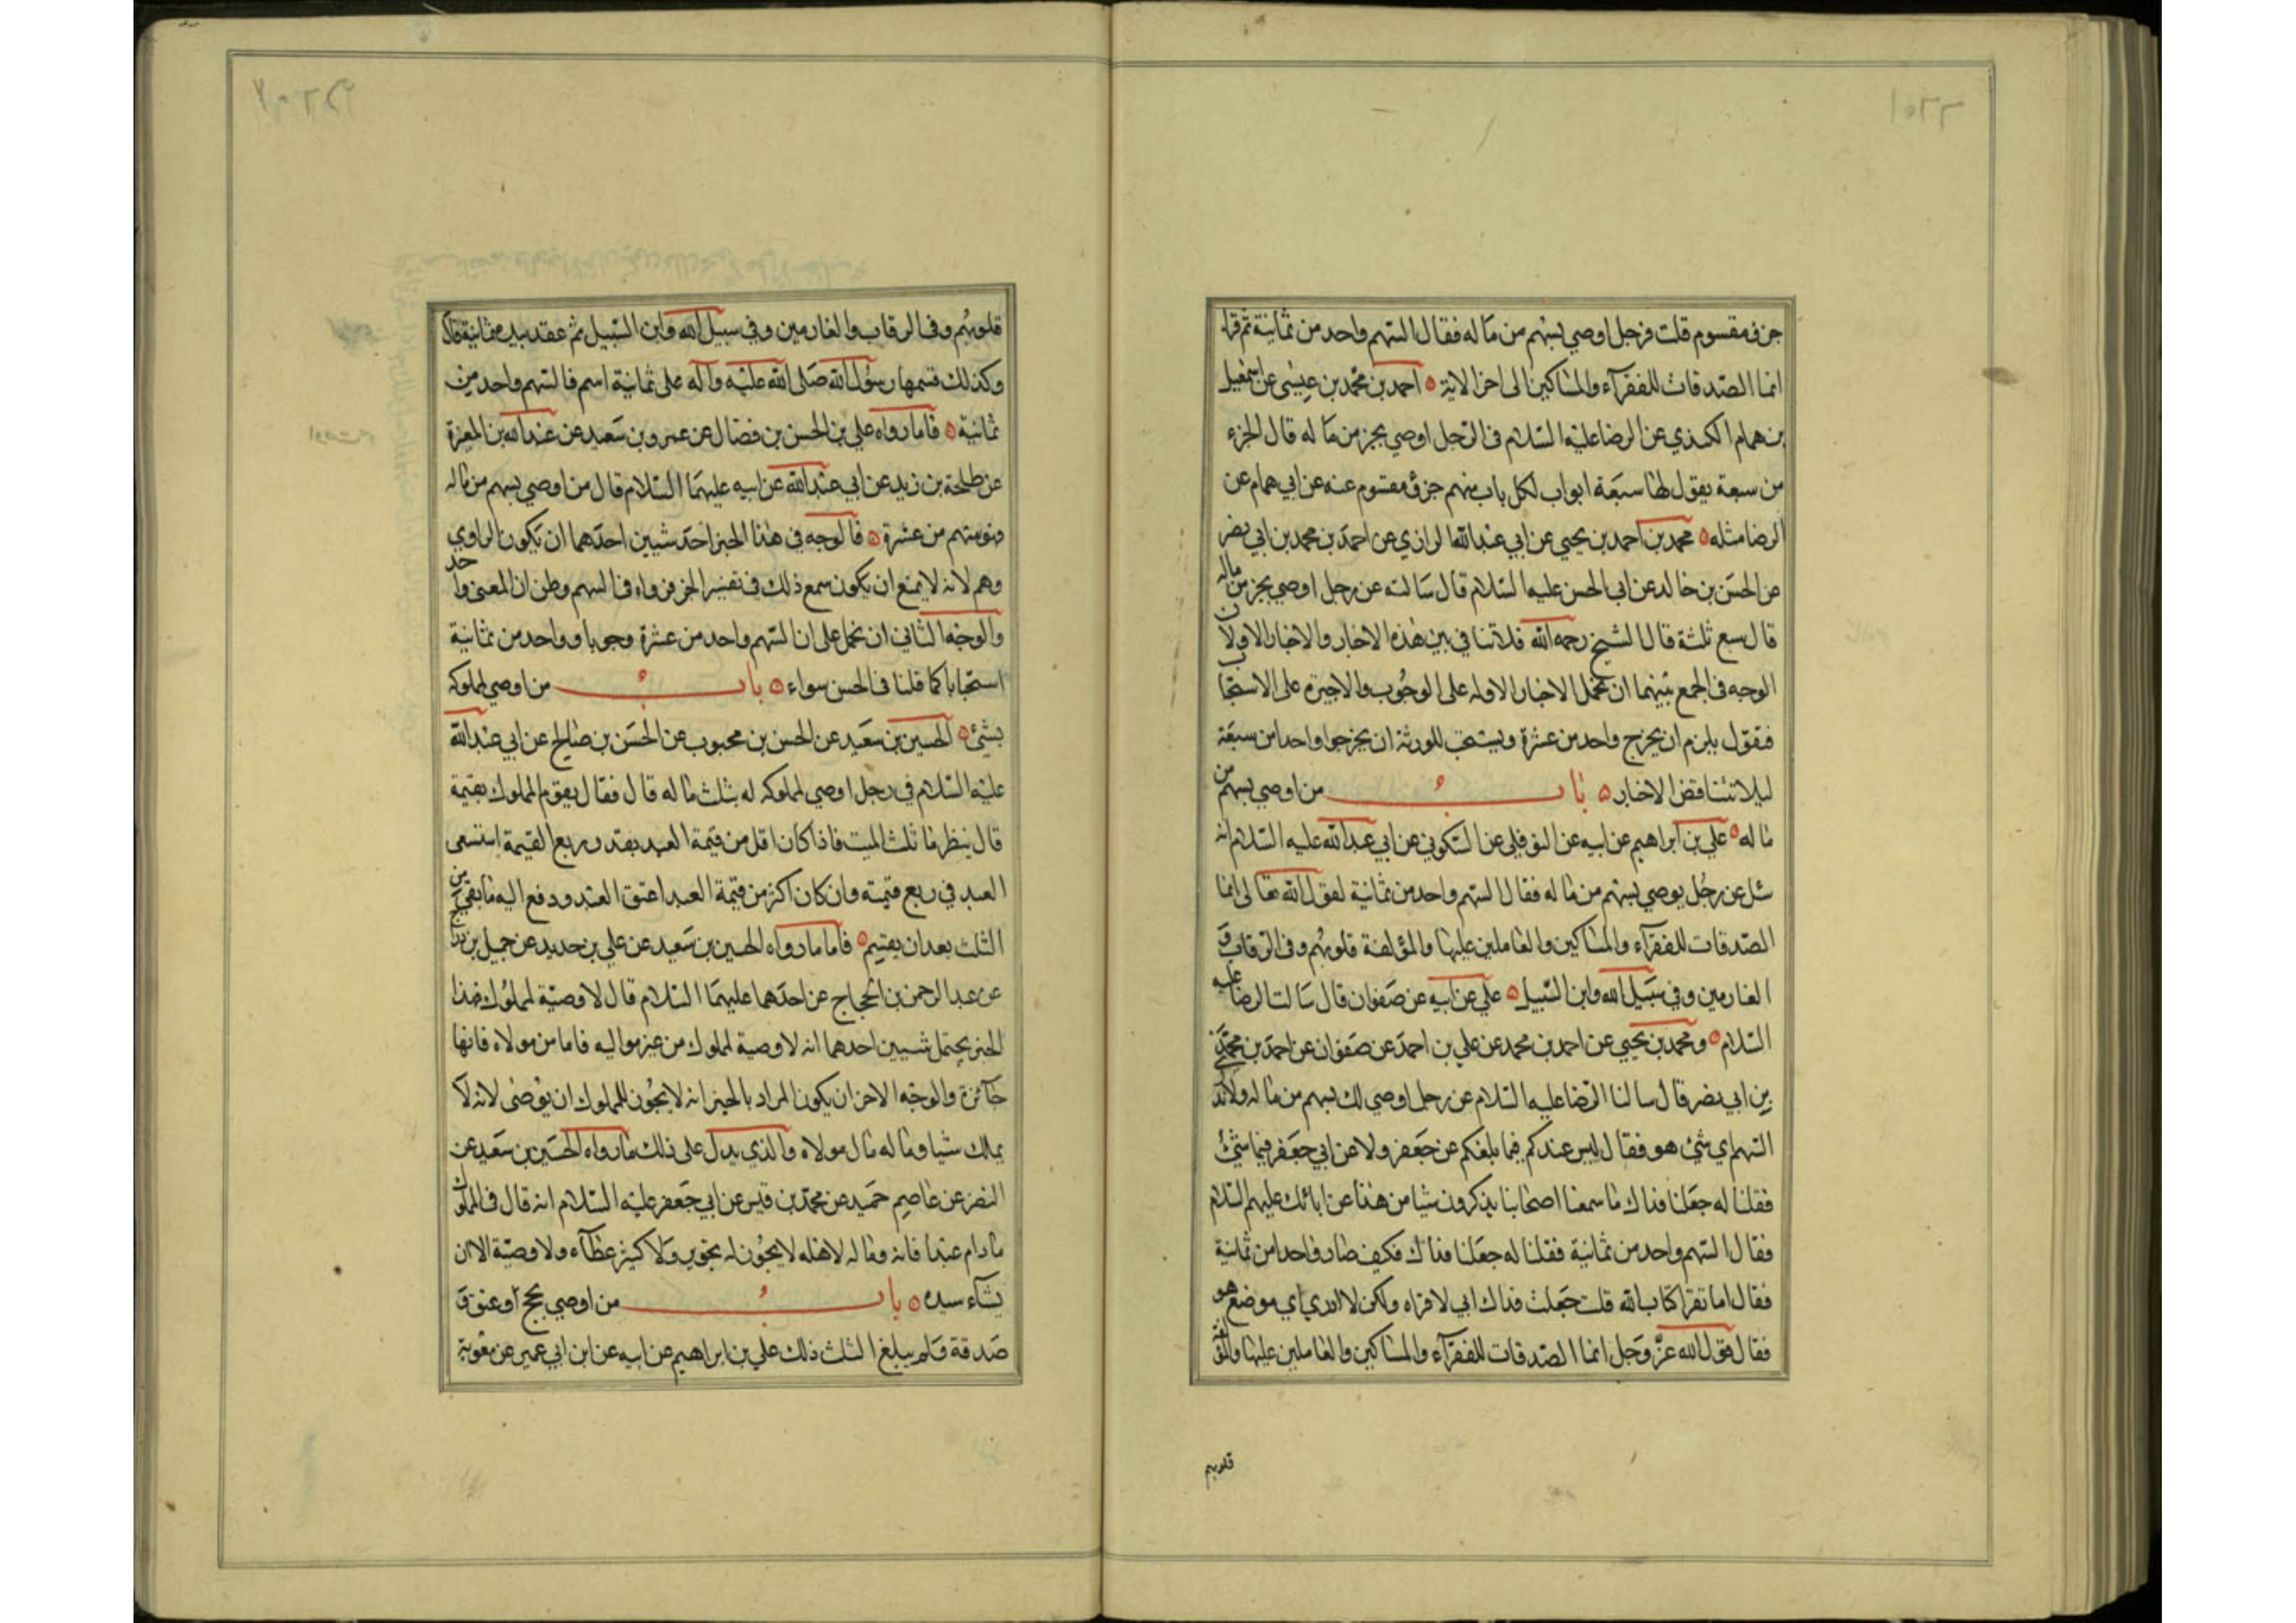 جزؤ مقسوم قلت فرجل اوصي بسهم من ماله فقال السهم واحد من ثمانية ثم قرا
انما الصدقات للفقرآء والمساكين الى اخر الاية احمد بن محمد بن عيسى عن اسمعيل
بن همام الكندي عن الرضا عليه السلام في الرجل اوصي بجزء من ماله قال الجزء
من سبعة يقول لها سبعة ابواب لكل باب منهم جزؤ مقسوم عنه عن ابي همام عن
الرضا مثله محمد بن احمد بن يحيي عن ابي عبد الله الرازي عن احمد بن محمد بن ابي نصر
عن الحسن بن خالد عن ابي الحسن عليه السلام قال سالته عن رجل اوصي بجزء من ماله
قال سبع ثلثة قال الشيخ رحمه الله فلا تنافي بين هذه الاخبار والاخبار الاولة لان
الوجه في الجمع بينهما ان نحمل الاخبار الاوله على الوجوب والاخيرة على الاستحباب
فنقول يلزم ان يخرج واحد من عشرة ويستحب للورثة ان يخرجوا واحدا من سبعة
ليلا تتناقض الاخبار باب من اوصي بسهم من
ماله علي بن ابراهيم عن ابيه عن النوفلي عن السكوني عن ابي عبد الله عليه السلام انه
سئل عن رجل يوصي بسهم من ماله فقال السهم واحد من ثمانية لقول الله تعالى انما
الصدقات للفقرآء والمساكين والعاملين عليها والمؤلفة قلوبهم وفي الرقاب و
الغارمين وفي سبيل الله وابن السبيل علي عن ابيه عن صفوان قال سالت الرضا عليه
السلام ومحمد بن يحيي عن احمد بن محمد عن علي بن احمد عن صفوان عن احمد بن محمد
بن ابي نصر قال سالنا الرضا عليه السلام عن رجل اوصي لك بسهم من ماله ولا ندري
السهم اي شئ هو فقال ليس عندكم فيما بلغكم عن جعفر ولا عن ابي جعفر فيها شئ
فقلنا له جعلنا فداك ما سمعنا اصحابنا يذكرون شيا من هذا عن ابائك عليهم السلام
فقال السهم واحد من ثمانية فقلنا له جعلنا فداك فكيف صار واحدا من ثمانية
فقال اما تقرا كتاب الله قلت جعلت فداك اني لاقراه ولكن لا ادري اي موضع هو
فقال قول الله عز وجل انما الصدقات للفقرآء والمساكين والعاملين عليها والمؤلفة
قلوبهم
قلوبهم وفي الرقاب والغارمين وفي سبيل الله وابن السبيل ثم عقد بيده ثمانية قال
وكذلك قسمها رسول الله صلى الله عليه وآله على ثمانية اسهم فالسهم واحد من
ثمانية فاما رواه علي بن الحسن بن فضال عن عمرو بن سعيد عن عبد الله بن المغيرة
عن طلحة بن زيد عن ابي عبد الله عن ابيه عليهما السلام قال من اوصي بسهم من ماله
فهو سهم من عشرة فالوجه في هذا الخبر احد شيين احدهما ان يكون الراوي
وهم لانه لا يمنع ان يكون سمع ذلك في تفسير الجزء فرواه في السهم وظن ان المعنى واحد
والوجه الثاني ان نحمل على ان السهم واحد من عشرة وجوبا وواحد من ثمانية
استحبابا كما قلنا في الحسن سواء باب من اوصي لمملوكه
بشئ الحسين بن سعيد عن الحسن بن محبوب عن الحسن بن صالح عن ابي عبد الله
عليه السلام في رجل اوصي لمملوكه له بثلث ماله قال فقال يقوم المملوك بقيمة
قال ينظر ما ثلث الميت فاذا كان اقل من قيمة العبد بقدر ربع القيمة استسعى
العبد في ربع قيمته وان كان اكثر من قيمة العبد اعتق العبد ودفع اليه ما بقي من
الثلث بعد ان يقيم فاما ما رواه الحسين بن سعيد عن علي بن حديد عن جميل بن دراج
عن عبد الرحمن بن الحجاج عن احدهما عليهما السلام قال لا وصية لمملوك فهذا
الخبر يحتمل شيين احدهما انه لا وصية لمملوك من غير مواليه فاما من مولاه فانها
جآئزة والوجه الاخر ان يكون المراد بالخبر انه لا يجوز للمملوك ان يوصى لانه لا
يملك شيا وماله مال مولاه والذي يدل على ذلك ما رواه الحسين بن سعيد عن
النضر عن عاصم حميد عن محمد بن قيس عن ابي جعفر عليه السلام انه قال في المملوك
ما دام عبدا فانه وماله لاهله لا يجوز له تحرير ولا كثير عطآء ولا وصية الا ان
يشآء سيده باب من اوصي بحج او عتق و
صدقة ولم يبلغ الثلث ذلك علي بن ابراهيم عن ابيه عن ابن ابي عمير عن معوية